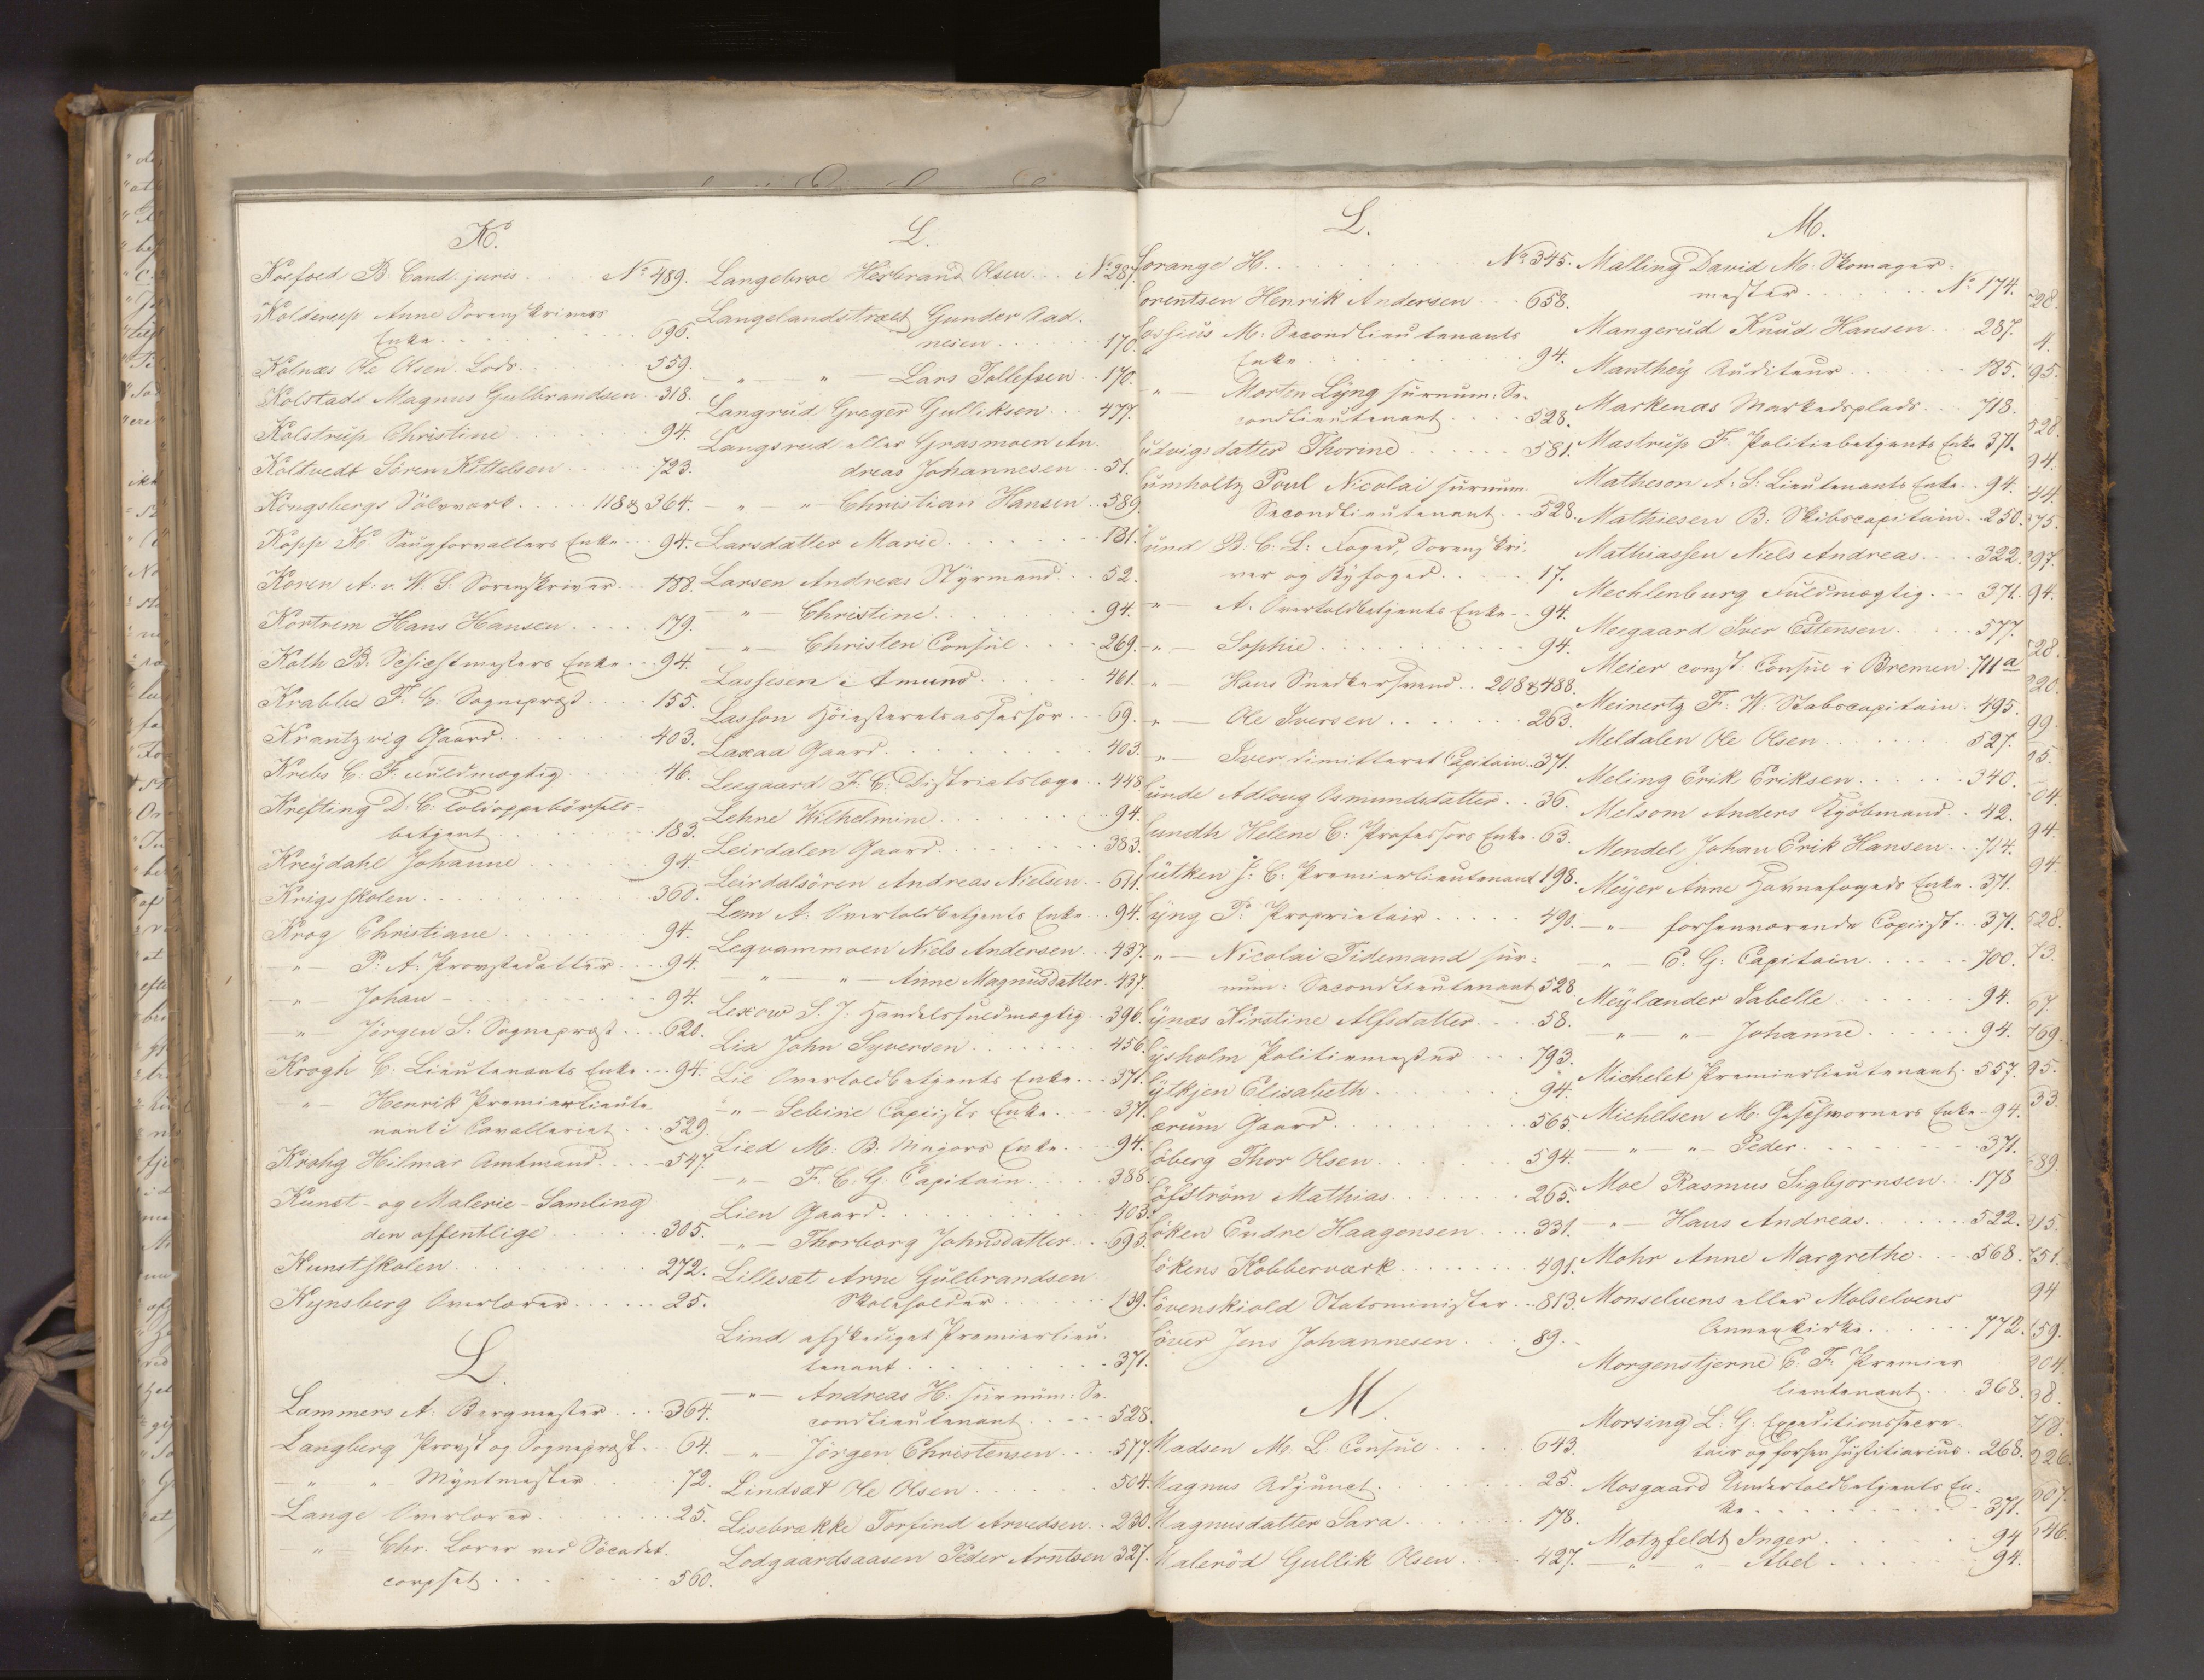 K.
Koefoed B. Cand. juris . . . No 489.
Kolderup Anne Sorenskrivers
Enke . . . 696.
Kolnæs Ole Olsen Lods . . . 559.
Kolstad Magnus Gulbrandsen . . 318.
Kolstrup Christine . . . 94.
Koltvedt Sören Kittelsen . . . 723.
Kongsbergs Sölvværk . . . 118 & 364.
Kopp K. Saugforvalters Enke . . . 94.
Koren A: v. W. S. Sorenskriver . . . 188.
Kortrem Hans Hansen . . . 179.
Koth B. Schichtmesters Enke . . . 94.
Krabbe F. C. Sogneprest . . . 155.
Krantzvig Gaard . . . 403.
Krebs C. F. Fuldmægtig . . . 46.
Krefting D. C. Toldoppebörsels-
betjent . . . 183.
Kreydahl Johanne . . . 94.
Krigsskolen . . . 360.
Krog Christiane . . . 94.
-"- P. A. Provstedatter . . . 94.
-"- Johan . . . 94.
" Jörgen S. Sogneprest . . . 620.
Krogh C. Lieutenants Enke . . . 94.
-"- Henrik Premierlieute-
nant i Cavalleriet . . . 529.
Krohg Hilmar Amtmand . . . 547.
Kunst- og Malerie-Samling
den offentlige . . . 305.
Kunstskolen . . . 272.
Kynsberg Overlærer . . . 25.
L.
Lammers A. Bergmester . . . 364.
Langberg Provst og Sogneprest . . 64.
" " Myntmester . . . 72.
Lange Overlærer . . . 25.
" Chr. Lærer ved Söcadet-
corpset . . . 560.
L.
Langebroe Herbrand Olsen . . . No 287.
Langelandstræet Gunder Aad-
nesen . . . 170.
-"- " Lars Tollefsen . . 170.
Langrud Greger Gulliksen . . . 477.
Langsrud eller Grasmoen An-
dreas Johannesen . . 51.
-"- " Christian Hansen . . 389.
Larsdatter Marie . . . 181.
Larsen Andreas Styrmand . . . 52.
-"- Christine . . . 94.
-"- Christen Consul . . . 269.
Lassesen Amund . . . 461.
Lasson Höiesteretsassessor . . . 69.
Laxaa Gaard . . . 403.
Leegaard F. C. Districtslæge . . 448.
Lehne Wilhelmine . . . 94.
Leirdalen Gaard . . . 383.
Leirdalsören Andreas Nielsen . . 611.
Lem A. Overtoldbetjents Enke . . . 94.
Leqvammoen Niels Andersen . . . 437.
-"- " Anne Magnusdatter . 437.
Lexow S. J. Handelsfuldmægtig . . 396.
Lia John Syversen . . . 456.
Lie Overtoldbetjents Enke . . . 371.
-"- Sebine Copiists Enke . . . 371.
Lied M. B. Majors Enke . . . 94.
-"- F. C. G. Capitain . . . 388.
Lien Gaard . . . 403.
-"- Thorborg Johnsdatter . . . 693.
Lillesæt Arne Gulbrandsen
Skoleholder . . . 139.
Lind afskediget Premierlieu-
tenant . . . 371.
-"- Andreas H. surnum. Se-
condlieutenant . . . 528.
-"- Jörgen Christensen . . . 577.
Lindsæt Ole Olsen . . . 504.
Lisebrække Torfind Arvedsen . . 230.
Lodgaardsaasen Peder Arntsen 327.
L.
Lorange H. . . . No 345.
Lorentsen Henrik Andersen . . . 658.
Lossius M. Secondlieutenants
Enke . . . 94.
"- Morten Lyng surnum: Se-
condlieutenant . . . 528.
Ludvigsdatter Thorine . . . 581.
Lumholtz Poul Nicolai surnum.
Secondlieutenant . . . 528.
Lund B. C. L. Foged, Sorenskri-
ver og Byfoged . . . 17.
"- A. Overtoldbetjents Enke . . 94.
"- Sophie . . . 94.
"- Hans Snedkersvend . . 208 & 488.
"- Ole Iversen . . . 263.
"- Iver dimitteret Capitain . . 371.
Lunde Adloug Osmundsdatter . . 36.
Lundth Helene C: Professors Enke . 63.
Lütken J: C: Premierlieutenant 198.
Lyng P: Proprietair . . . 490.
"- Nicolai Tidemand sur-
num: Secondlieutenant 528.
Lynæs Kirstine Alfsdatter . . . 58.
Lysholm Politiemester . . . 793.
Lytkjen Elisabeth . . . 94.
Lærum Gaard . . . 565.
Löberg Thor Olsen . . . 594.
Löfström Mathias . . . 265.
Löken Endre Haagensen . . . 331.
Lökens Kobberværk . . . 491.
Lövenskiold Statsminister . . 813.
Löver Jens Johannesen . . . 89.
M.
Madsen M. L. Consul . . . 643.
Magnus Adjunct . . . 25.
Magnusdatter Sara . . . 178.
Maleröd Gullik Olsen . . . 427.
M.
Malling David M. Skomager-
mester . . . No 174.
Mangerud Knud Hansen . . . 287.
Manthey Auditeur . . . 185.
Markenæs Markedsplads . . . 718.
Mastrup F. Politiebetjents Enke 371.
Matheson A. S. Lieutenants Enke . . 94.
Mathiesen B: Skibscapitain . . 250.
Mathiassen Niels Andreas . . . 322.
Mechlenburg Fuldmægtig . . . 371.
Meegaard Iver Estensen . . . 577.
Meier const. Consul i Bremen . 711 a
Meinertz F: W: Stabscapitain . 495.
Meldalen Ole Olsen . . . 527.
Meling Erik Eriksen . . . 340.
Melsom Anders Kjöbmand . . 42.
Mendel Johan Erik Hansen . . . 714.
Meyer Anne Havnefogeds Enke . 371.
-"- forhenværende Copiist . . 371.
-"- C. G. Capitain . . . 700.
Meylænder Isabelle . . . 94.
-"- " Johanne . . . 94.
Michelet Premierlieutenant . 557.
Michelsen M. Geschworners Enke . . 94.
-"- "- Peder . . . 371.
Moe Rasmus Sigbjornsen . . . 178
-"- Hans Andreas . . . 522.
Mohr Anne Margrethe . . . 568.
Monselvens eller Molselvens
Annexkirke . . . 772.
Morgenstjerne C: F: Premier
lieutenant . . . 368.
Morsing L. G. Expeditionssecre-
tair og forhen Justitiarius . 268.
Mosgaard Undertoldbetjents En-
ke . . . 371.
Motzfeldt Inger . . . 94
-"- "- Abel . . . 94.